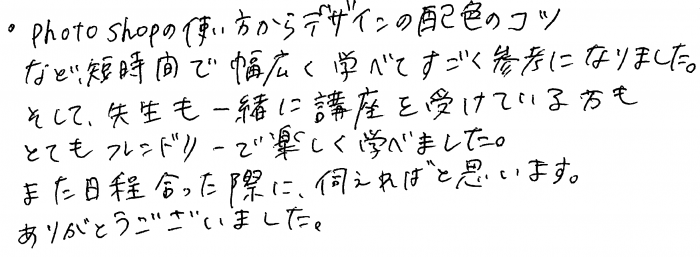 • Photo shopの使い方からデザインの配色のコツ
など、短時間で幅広く学べてすごく参考になりました。
そして、先生も一緒に講座を受けている方も
とてもフレンドリーで楽しく学べました。
また日程合った際に、伺えればと思います。
ありがとうございました。